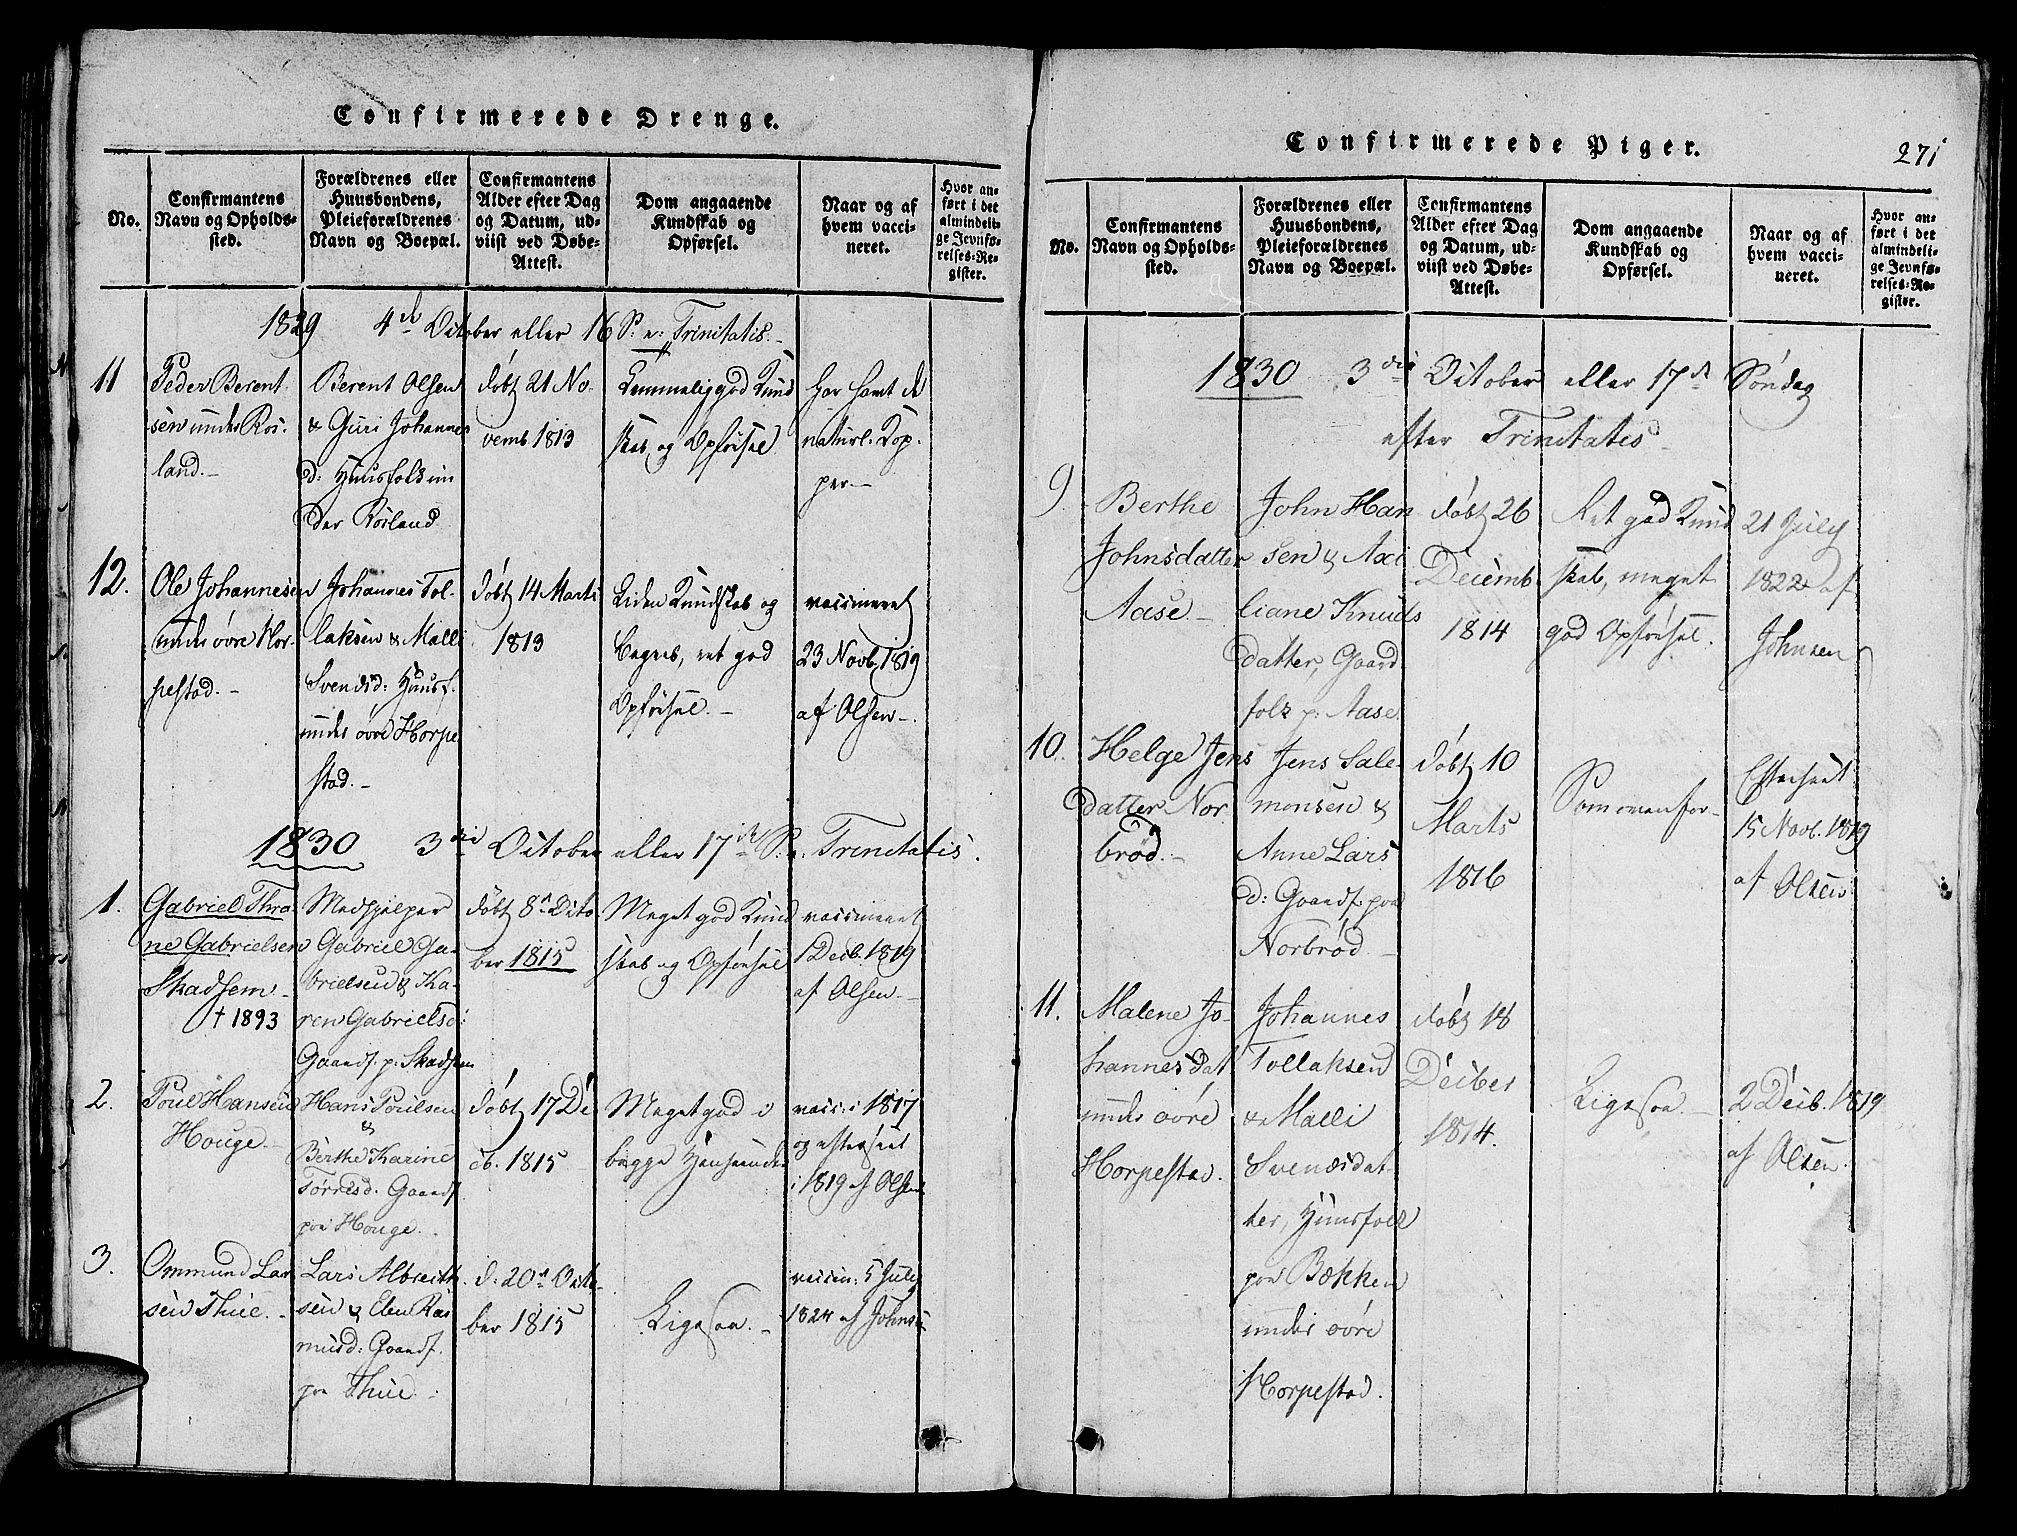 Confirmerede Drenge.
No.
Confirmantens
Navn og Opholds-
sted.
Forældrenes eller
Huusbondens,
Pleieforældrenes
Navn og Boepæl.
Confirmantens
Alder efter Dag
og Datum, ud-
viist ved Døbe-
Attest.
Dom angaaende
Kundskab og
Opførsel.
Naar og af
hvem vacci-
neret.
Hvor an-
ført i det
almindeli-
ge Jevnfø-
relses-Re-
gister.
1829 4d October eller 16 S: e: Trinitatis.
11
Peder Berent
sen under Ros-
land.
Berent Olsen
& Guri Johannes
d: Huusfolk un
der Rosland
døbt 21 No-
vemb 1813
Temmelig god Kund
skab og Opførsel
har havt de
naturl: Kop-
per
12.
Ole Johannesen
under øvre Hor-
pestad.
Johannes Tol-
laksen & Malli
Svendsd: Huusf.
under øvre Horpe
stad.
døbt 14 Marts
1813
Liden Kundskab og
Begreb, ret god
Opførsel.
vaccineret
23 Novb. 1819
af Olsen.
1830 3die October eller 17de S: e: Trinitatis.
1.
Gabriel Thra
ne Gabrielsen
Skadsem
† 1893
Medhjelper
Gabriel Ga-
brielsen & Ka-
ren Gabrielsd:
Gaardf. p: Skadsem
døbt 8d Octo
ber 1815
Meget god Kund
skab og Opførsel
vaccineret
1 Decb. 1819
af Olsen.
2.
Poul Hansen
Houge.
Hans Poulsen
&
Berthe Karine
Tørresd: Gaardf
paa Houge.
døbt 17 De
cb. 1815
Meget god i
begge Henseender
vacc: i 1817
og efterseet
i 1819 af Olsen
3.
Ommund Lar
sen Thue.
Lars Albreith
sen & Elen Ras
musd: Gaardf.
paa Thue.
d: 20d Octo-
ber 1815
Ligesaa.
vaccin: 5 July
1824 af Johnsen
Confirmerede Piger.
271
No.
Confirmantens
Navn og Opholds-
sted.
Forældrenes eller
Huusbondens,
Pleieforældrenes
Navn og Boepæl.
Confirmantens
Alder efter Dag
og Datum, ud-
viist ved Døbe-
Attest.
Dom angaaende
Kundskab og
Opførsel.
Naar og af
hvem vacci-
neret.
Hvor an-
ført i det
almindeli-
ge Jevnfø-
relses-Re-
gister.
1830 3die October eller 17de Søndag
efter Trinitatis
9
Berthe
Johnsdatter
Aase.
John Han
sen & Axi
liane Knuds
datter, Gaard
folk p: Aase.
døbt 26
Decemb
1814
Ret god Kund
skab, meget
god Opførsel.
21 July
1822 af
Johnsen
10.
Helge Jens
datter Nor
brød.
Jens Sale-
monsen &
Anne Lars
d: Gaardf. paa
Norbrød
døbt 10
Marts
1816
Som ovenfor
Efterseet
15 Novb. 1819
af Olsen
11.
Malene Jo-
hannesdat
under øvre
Horpestad.
Johannes
Tollaksen
& Malli
Svendsdat
ter, Huusfolk
paa Bækken
under øvre
Horpestad.
døbt 18
Decber
1814.
Ligesaa.
2 Decb. 1819
af Olsen.